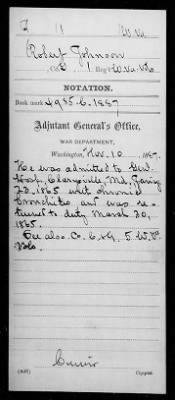 J | W. Va.
Robert Johnson
Co. , 1 Reg't W. Va. Vols
NOTATION.
Book mark: 4985-C-1887
Adjutant General's Office,
WAR DEPARTMENT,
Washington, Nov. 10, 1887.
He was admitted to Genl.
Hosp. Clarysville, Md., Jany
22, 1865 with chronic
bronchitis and was re-
turned to duty March 20,
1865.
See also Co. C & G, 5. W. V.
Vols.
Copyist.